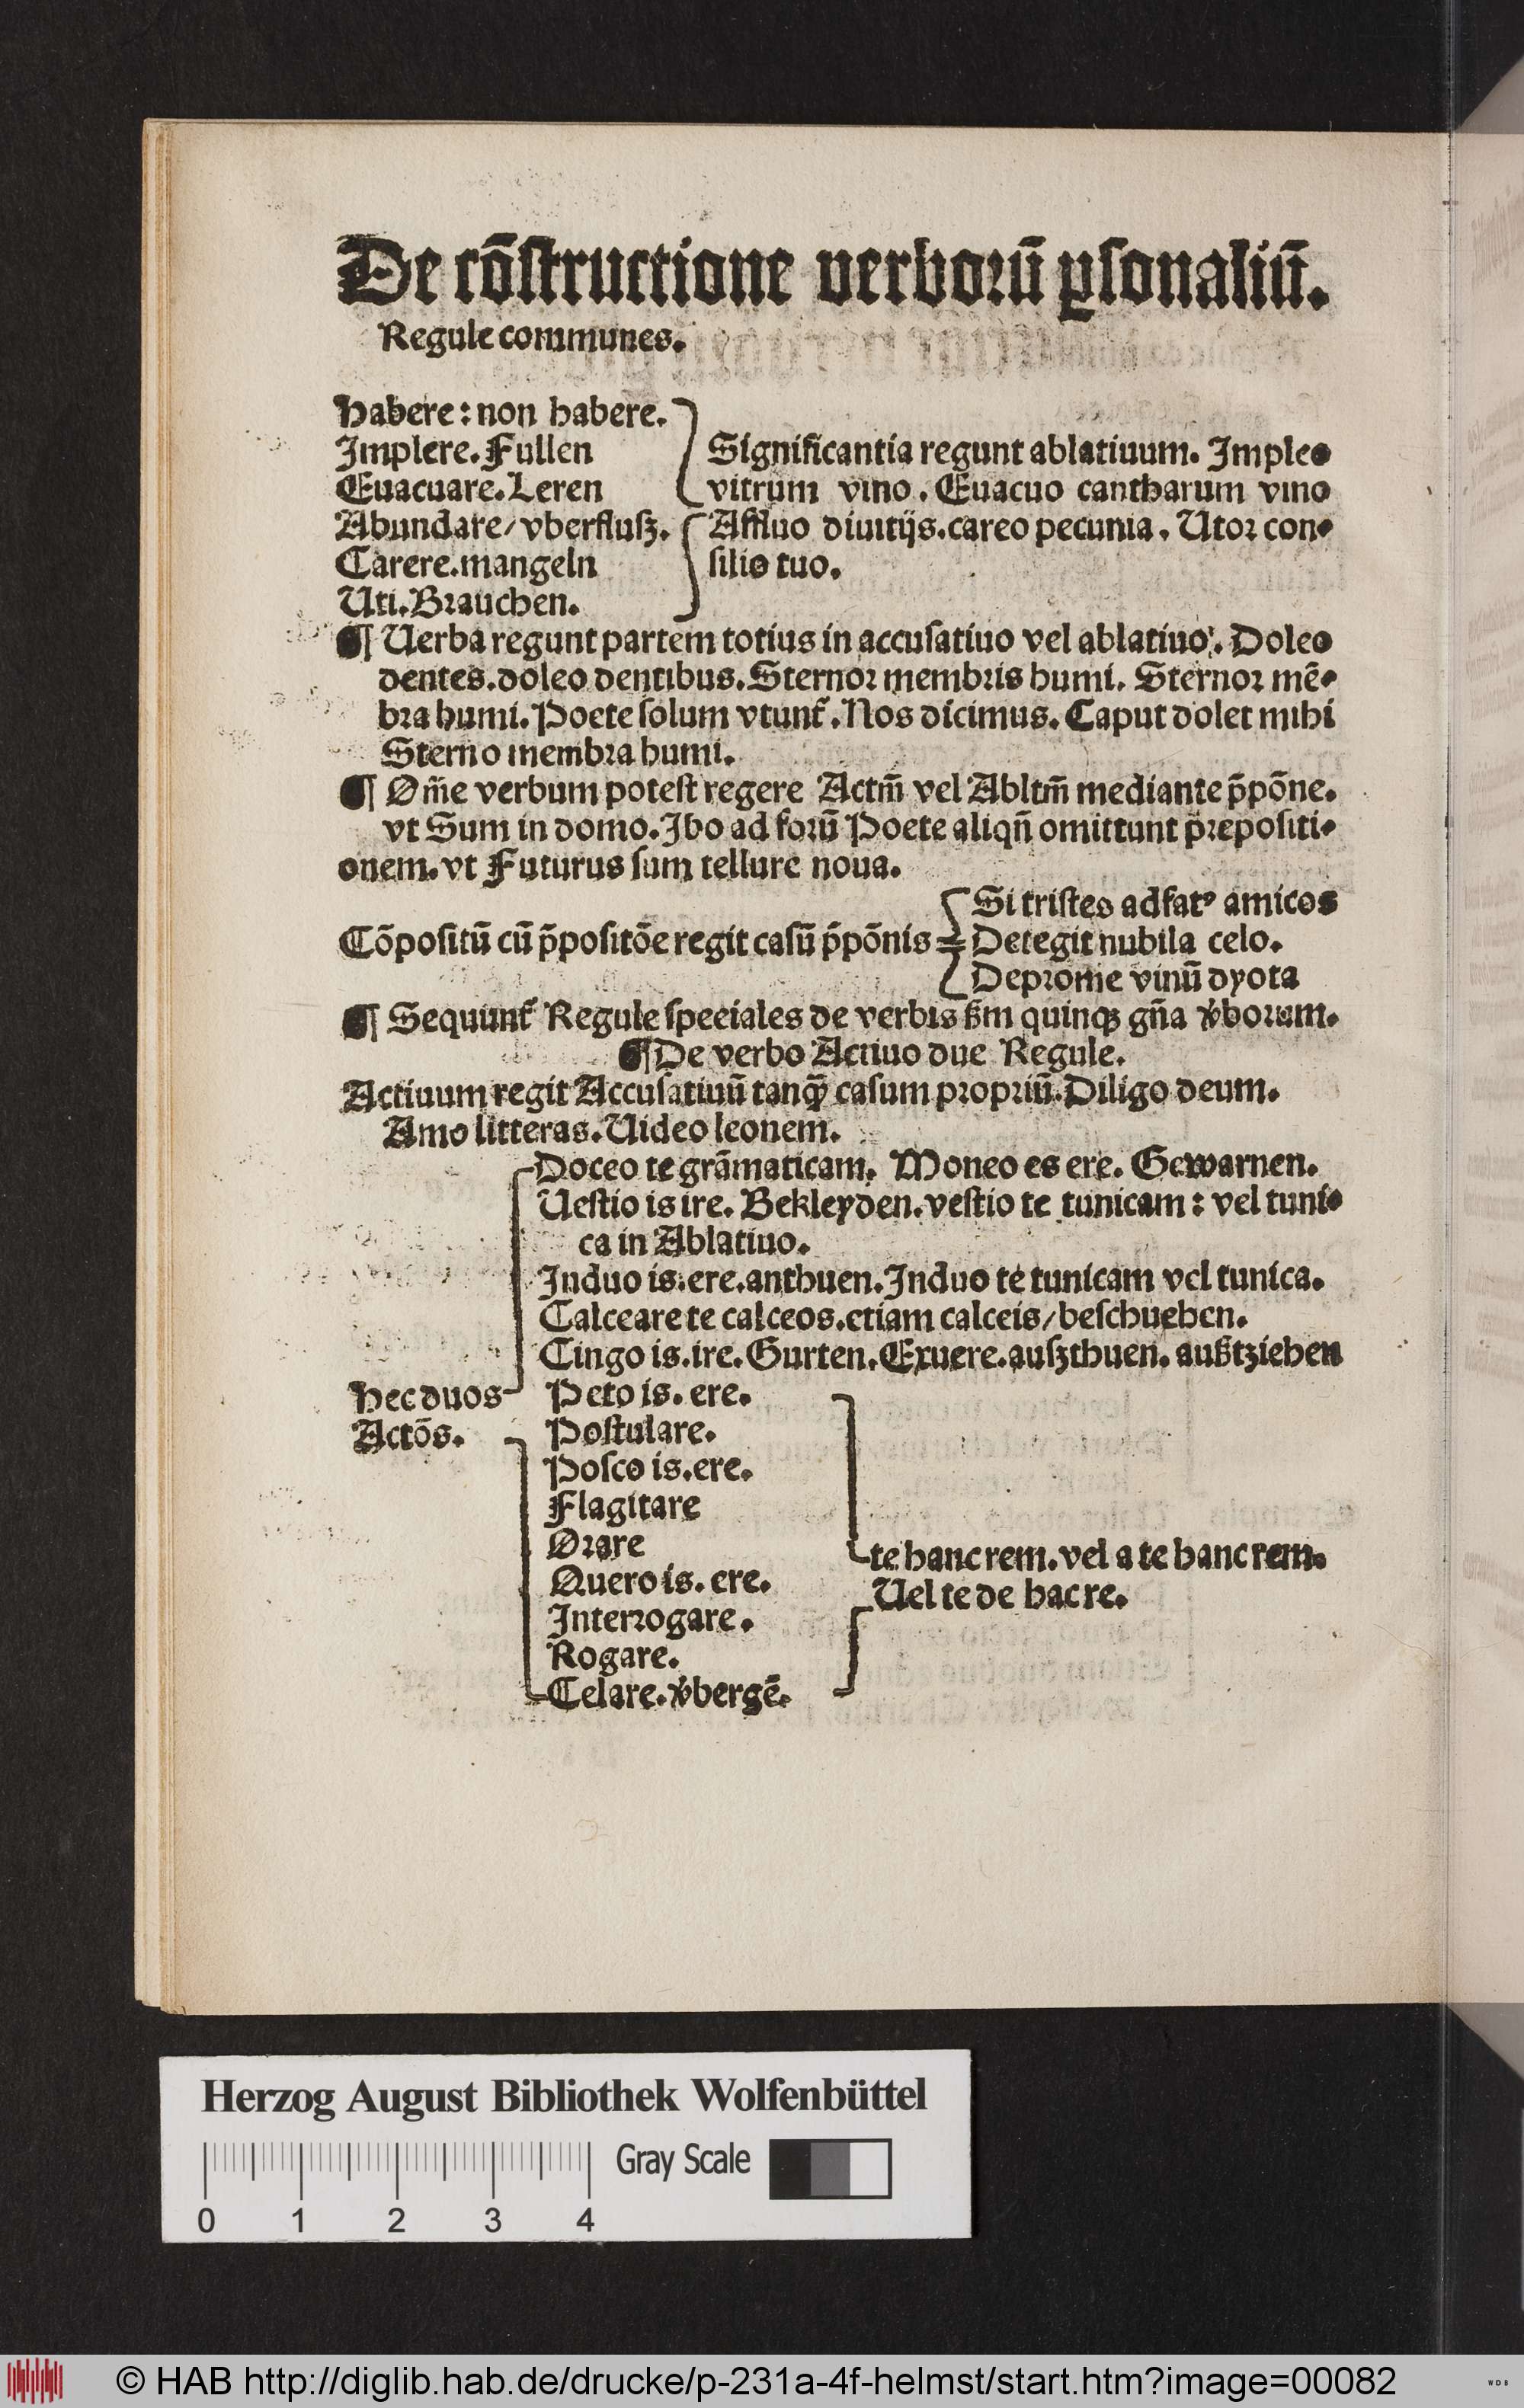 De cōſtructione verborū ꝑſonaliū.
Regule communes.
Habere: non habere.
Implere. Fullen
Euacuare. Leren
Abundare/ vberfluſz.
Carere. mangeln
Uti. Brauchen.
Significantia regunt ablatiuum. Impleo
vitrum vino. Euacuo cantharum vino
Affluo diuitijs. careo pecunia. Utor con-
ſilio tuo.
¶ Uerba regunt partem totius in accuſatiuo vel ablatiuo. Doleo
dentes. doleo dentibus. Sternor membris humi. Sternor mē-
bra humi. Poete ſolum vtunt᷑. Nos dicimus. Caput dolet mihi
Sterno membra humi.
¶ Om̄e verbum poteſt regere Actm̄ vel Abltm̄ mediante p̄pōne.
vt Sum in domo. Ibo ad forū Poete aliqn̄ omittunt p̄repoſiti-
onem. vt Futurus ſum tellure noua.
Cōpoſitū cū p̄poſitōe regit caſū p̄pōnis
Si triſtes adfatꝰ amicos
Detegit nubila celo.
Deprome vinū dyota
¶ Sequunt᷑ Regule ſpeciales de verbis ẜm quinqꝫ gn̄a v̓borum.
¶ De verbo Actiuo due Regule.
Actiuum regit Accuſatiuū tanqꝫ̄ caſum propriū. Diligo deum.
Amo litteras. Uideo leonem.
Doceo te grāmaticam. Moneo es ere. Gewarnen.
Ueſtio is ire. Bekleyden. veſtio te tunicam: vel tuni-
ca in Ablatiuo.
Induo is. ere. anthuen. Induo te tunicam vel tunica.
Calceare te calceos. etiam calceis/ beſchuehen.
Cingo is. ire. Gurten. Exuere. auſzthuen. außtziehen
Hec duos
Actōs.
Peto is. ere.
Poſtulare.
Poſco is. ere.
Flagitare
Orare
Quero is. ere.
Interrogare.
Rogare.
Celare. v̓bergē.
te hanc rem. vel a te hanc rem.
Uel te de hac re.
Herzog August Bibliothek Wolfenbüttel
Gray Scale
0 1 2 3 4
© HAB http://diglib.hab.de/drucke/p-231a-4f-helmst/start.htm?image=00082
WDB